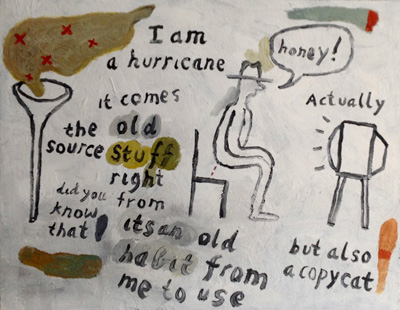 I am
a hurricane
honey!
it comes
the old
source stuff
right
did you from
know
that
its an old
habit from
me to use
Actually
but also
a copycat